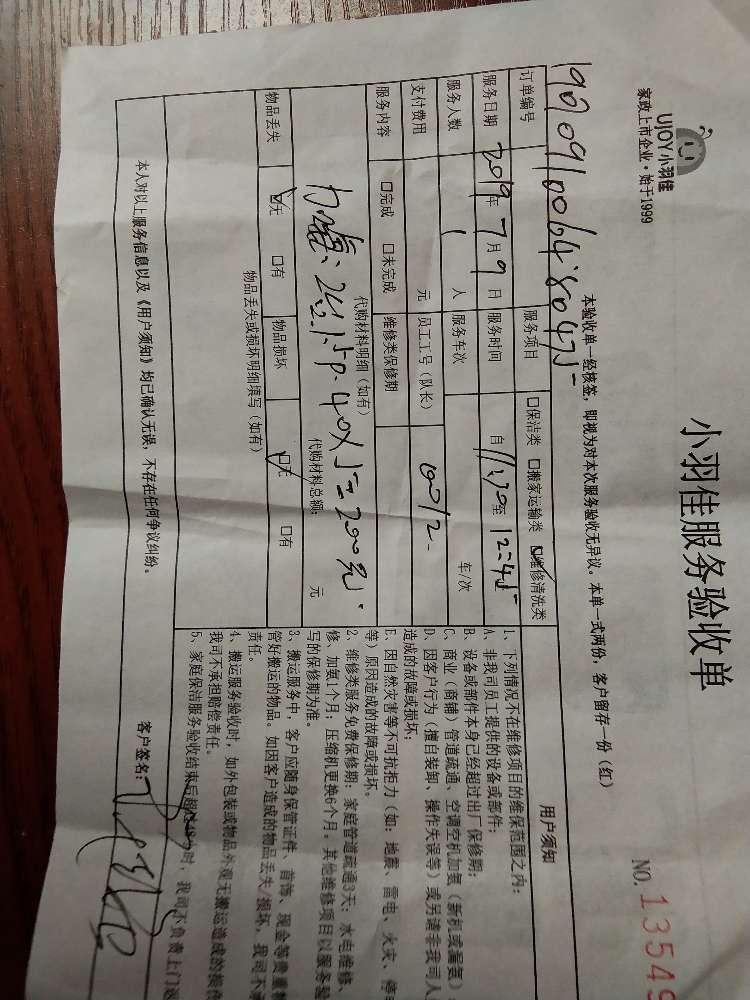 UJOY小羽佳
家政上市企业·始于1999
小羽佳服务验收单
NO. 13549
本验收单一经核签，即视为对本次服务验收无异议。本单一式两份，客户留存一份（红）
订单编号 服务项目 □保洁类 □搬家运输类 ☑维修清洗类
服务日期 2019年7月9日 服务时间 自11:20至12=45
服务人数 1 人 服务车次 车/次
支付费用 元 员工工号（队长） 0012-
服务内容 □完成 □未完成 维修类保修期
代购材料明细（如有） 代购材料总额： 元
40X5=200元.
物品丢失 ☑无 □有 物品损坏 ☑无 □有
物品丢失或损坏明细填写（如有）
用户须知
1、下列情况不在维修项目的维保范围之内：
A、非我司员工提供的设备或部件；
B、设备或部件本身已经超过出厂保修期；
C、商业（商铺）管道疏通、空调空机加氨（新机或漏氨）
D、因客户行为（擅自装卸、操作失误等）或另请非我司人
造成的故障或损坏；
E、因自然灾害等不可抗拒力（如：地震、雷电、火灾、
等）原因造成的故障或损坏。
2、维修类服务免费保修期：家庭管道疏通3天；水电维修、
修、加氨1个月；压缩机更换6个月。其他维修项目以服务验
写的保修期为准。
3、搬运服务中，客户应随身保管证件、首饰、现金等贵重
管好搬运的物品。如因客户造成的物品丢失/损坏，我司不
责任。
4、搬运服务验收时，如外包装或物品外观无搬运造成的损
我司不承担赔偿责任。
5、家庭保洁服务验收结束后超过48小时，我司不负责上门返
本人对以上服务信息以及《用户须知》均已确认无误，不存在任何争议纠纷。
客户签名：